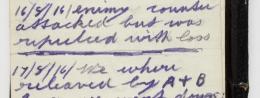 16/8/16/ enemy counter
attacked but was
repulced with loss
17/8/16/ We where
releaved by A + B